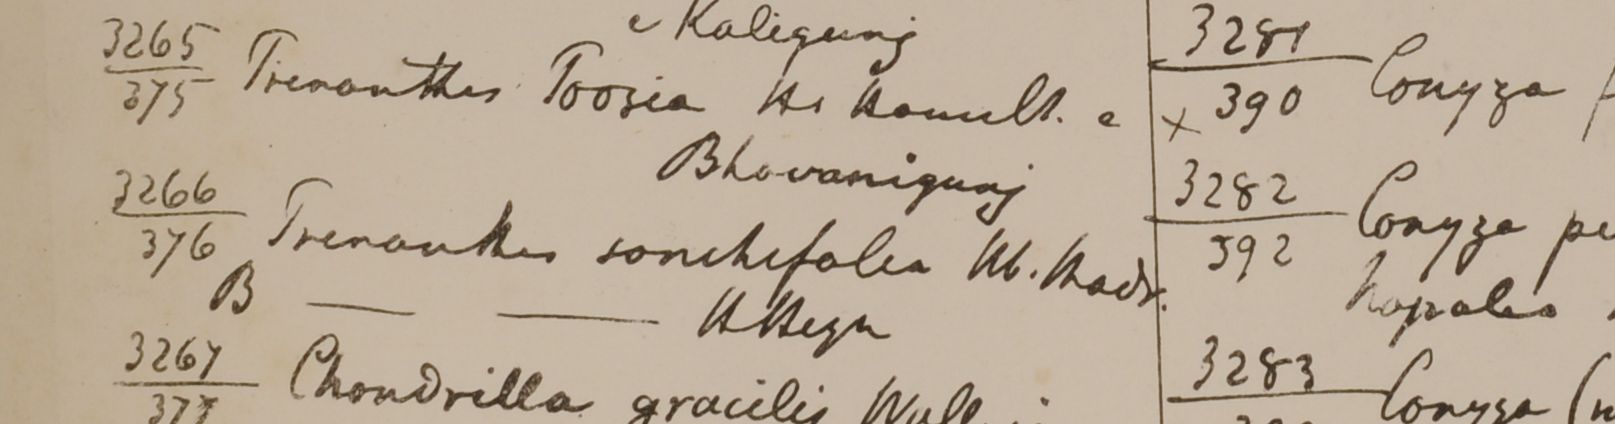 e Kaligunj
3265
375 Prenanthes Toosia Hb Hamilt. e
Bhovanigunj
3266
376 Prenanthes sonchifolia Hb. Madr.
B — — H Heyn
3267
377 Chondrilla gracilis Wall
3281
× 390 Conyza
3282
392 Conyza
Napalia
3283
Conyza